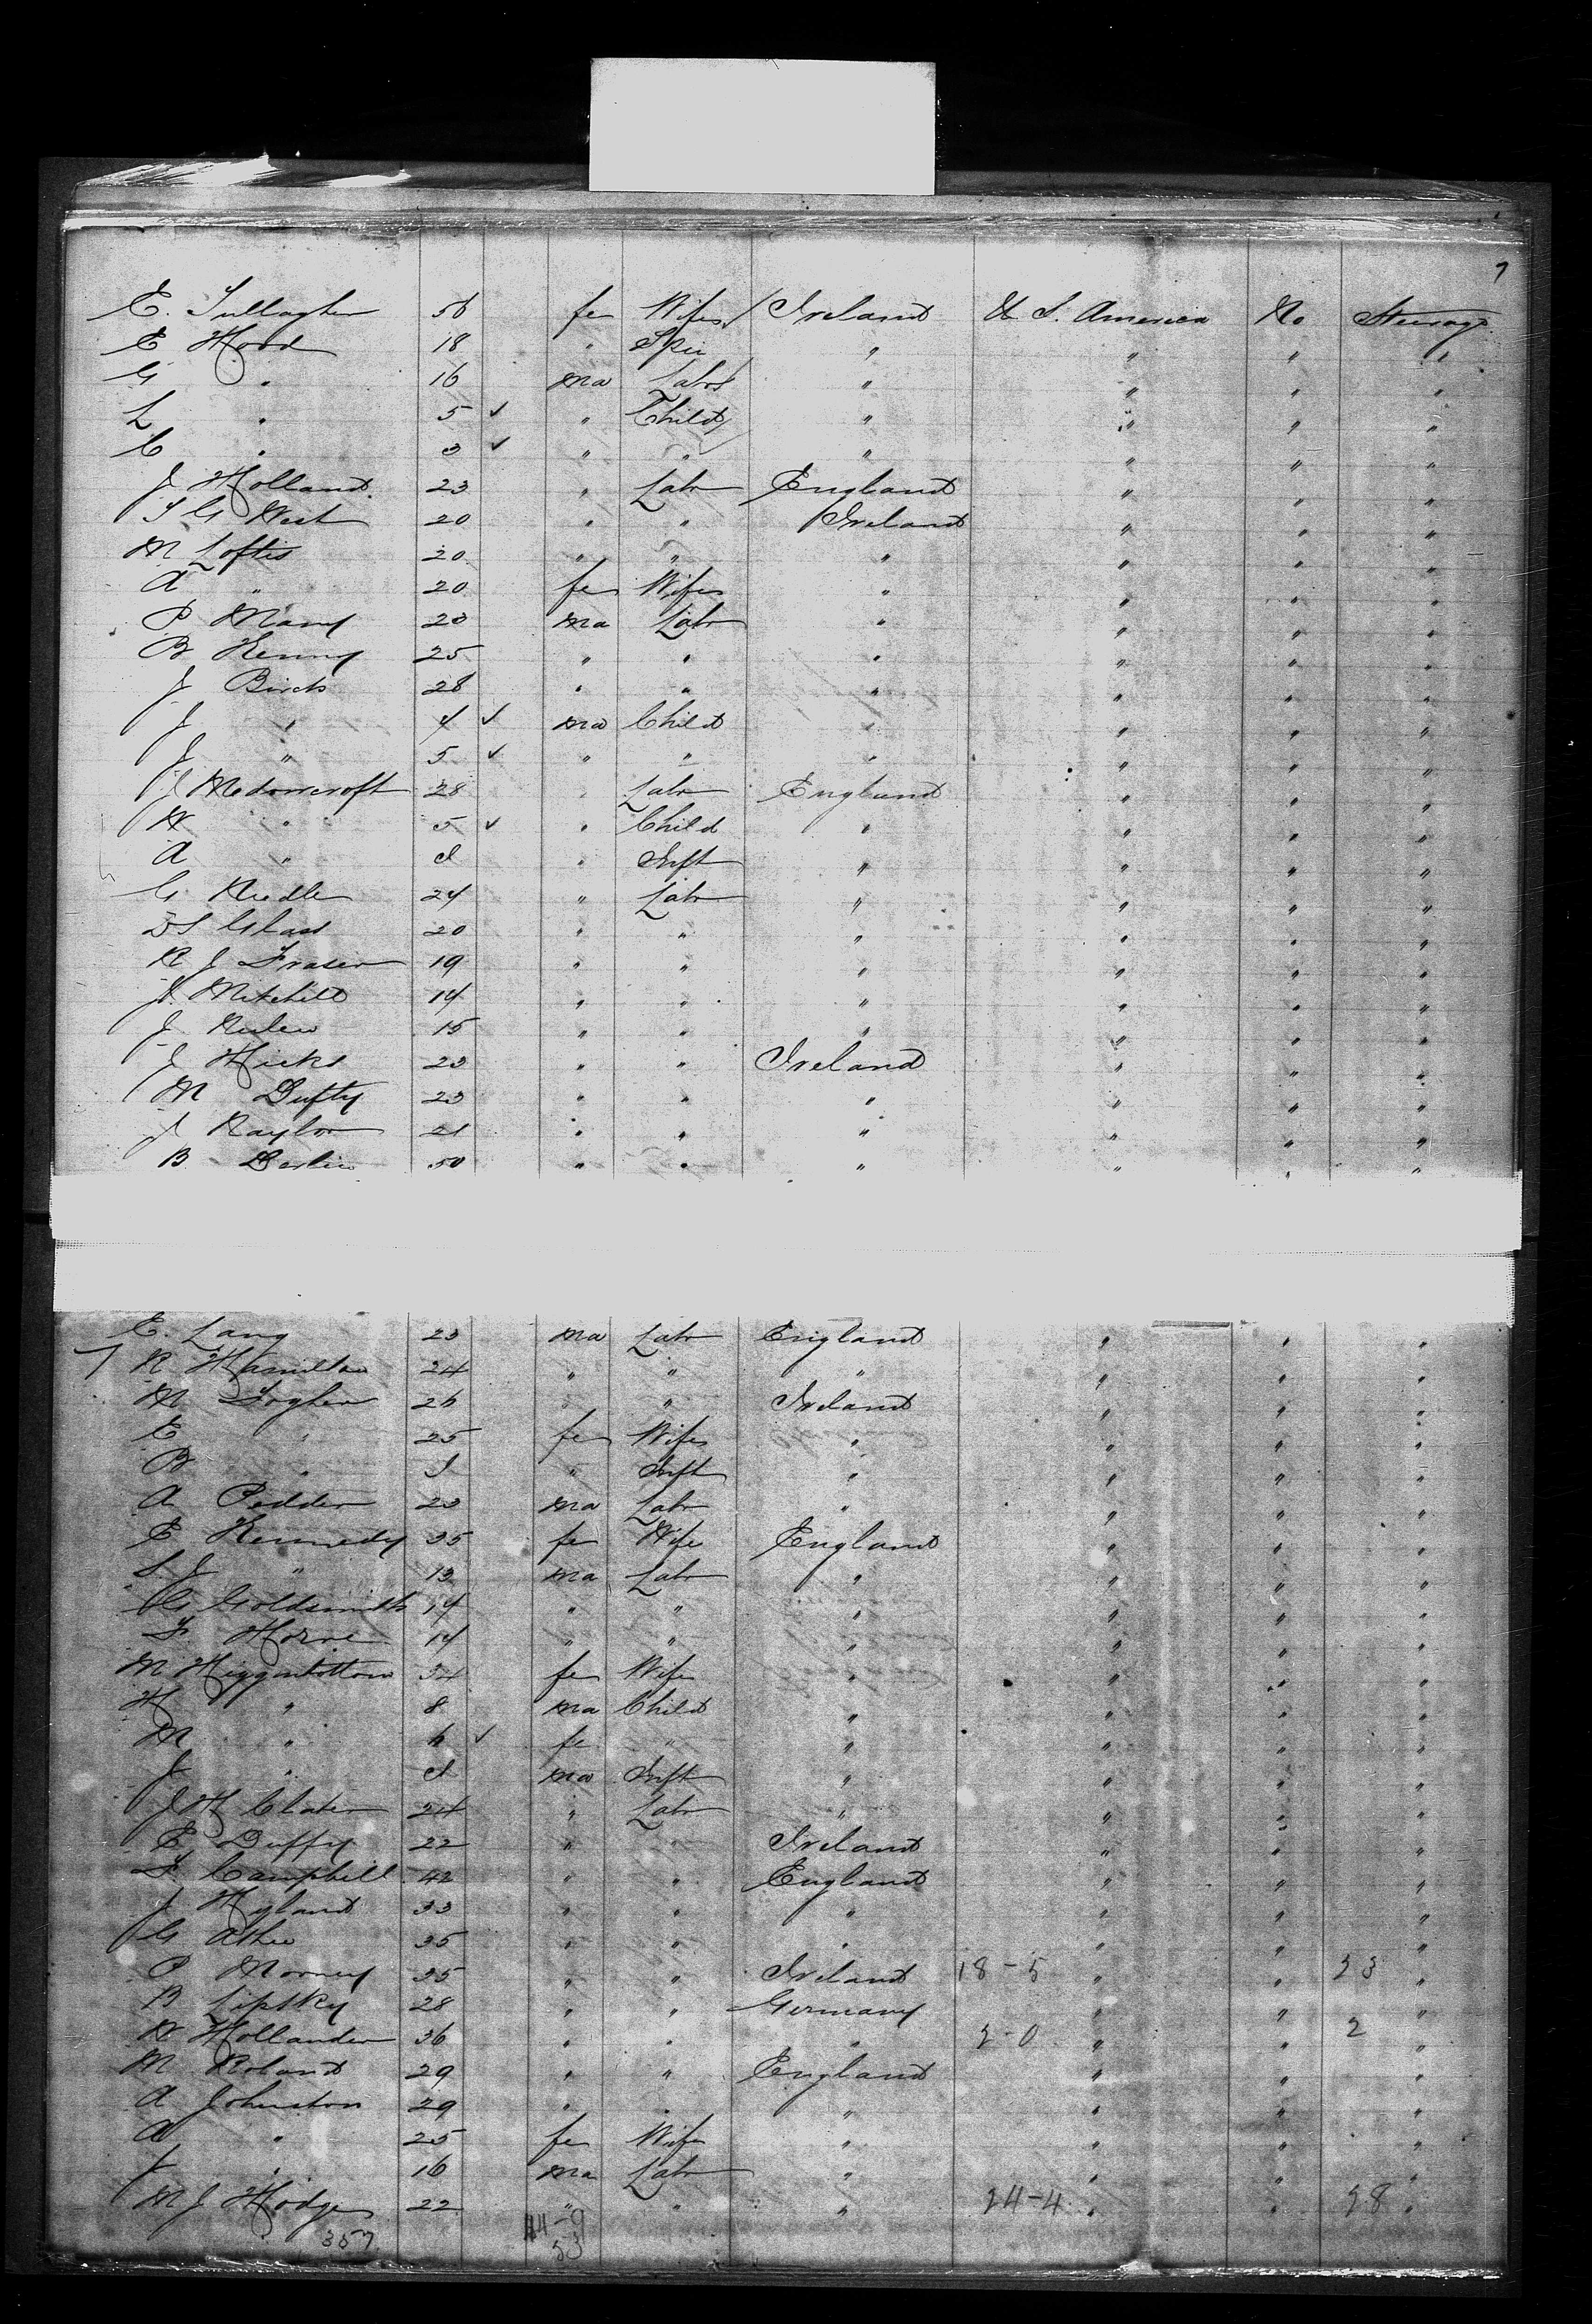 7
E. Tullagher 56 fe Wife Ireland U. S. America No Steerage
E Hood 18 " Spin " " " "
G " 16 ma Labr " " " "
L " 5 ✓ " Child " " " "
C " 3 ✓ " " " " " "
J Holland 23 " Labr England " " "
S G West 20 " " Ireland " " "
M Loftis 20 " " " " " "
A " 20 fe Wife " " " "
P Many 23 ma Labr " " " "
B Kenny 25 " " " " " "
J Birch 28 " " " " " "
J " 4 ✓ ma Child " " " "
J " 5 ✓ " " " " " "
J Medowcroft 28 " Labr England " " "
W " 5 ✓ " Child " " " "
A " I " Inft " " " "
G Needle 24 " Labr " " " "
D S Glass 20 " " " " " "
R J Fraser 19 " " " " " "
J. Mitchell 14 " " " " " "
J 15 " " " " " "
J Hicks 23 " " Ireland " " "
M Dufty 23 " " " " " "
J Naylor 21 " " " " " "
B Deslin 50 " " " " " "
E. Lang 23 ma Labr England " " "
7 R Hamilton 24 " " " " " "
M Fogher 26 " " Ireland " " "
E " 25 fe Wife " " " "
B " I " Inft " " " "
A Pedder 23 ma Labr " " " "
E Kennedy 35 fe Wife England " " "
S J " 13 ma Labr " " " "
G Goldsmith 14 " " " " " "
F. Horne 14 " " " " " "
M Higginbottom 34 fe Wife " " " "
H " 8 ma Child " " " "
M " 6 ✓ fe " " " " "
J " I ma Inft " " " "
J H Clater 24 " Labr " " " "
E Duffy 22 " Ireland " " "
F. Campbell 42 " " England " " "
J Hyland 33 " " " " " "
G Athe 35 " " " " " "
P Morney 35 " " Ireland 18-5 " " 23 "
B Lipsky 28 " " Germany " " "
W Hollander 36 " " " 2-0 " " 2 "
M Roland 29 " " England " " "
A Johnston 29 " " " " "
A " 25 fe Wife " " " "
J " 16 ma Labr " " " "
M J Hodge 22 " " " 24-4 " " 28 "
357 44-9
53